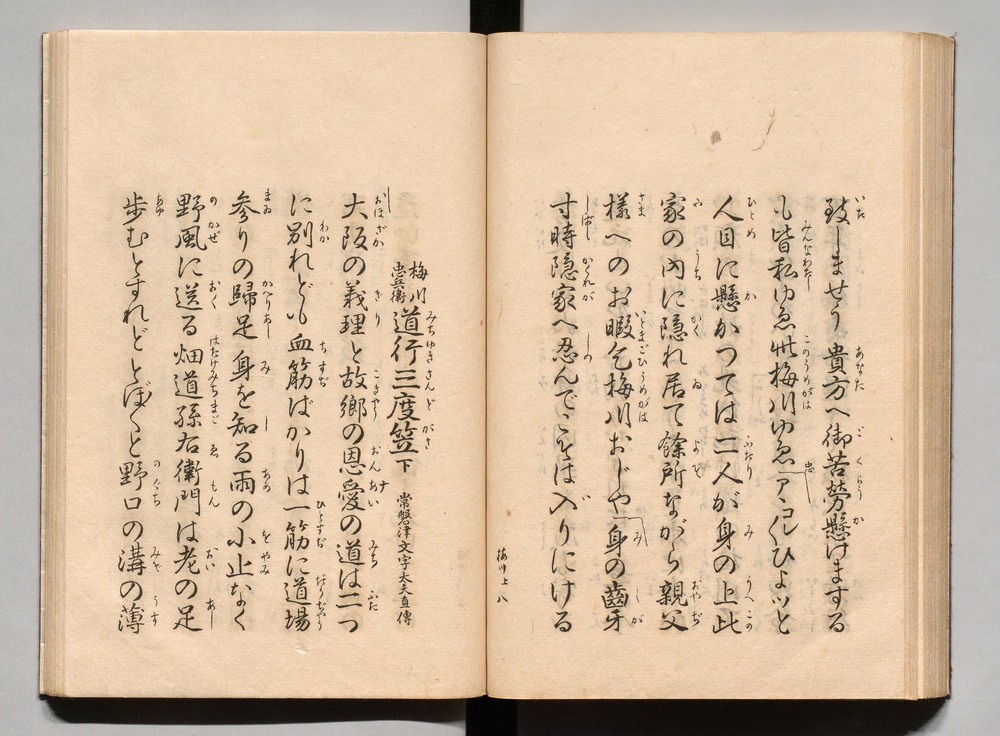 致しませう 貴方へ御苦労懸けまする
も皆私ゆゑ此梅川ゆゑ 忠 アヽコレ〳〵ひよツと
人目に懸かつては二人が身の上此
家の内に隠れ居て餘所ながら親父
様へのお暇乞梅川おじや 身の齒牙
寸時隠家へ忍んでこそは入りにける
梅川上 八
梅川
忠兵衛
道行三度笠 下 常磐津文字太夫直傳
大阪の義理と故郷の恩愛の道は二つ
に別れども血筋ばかりは一筋に道場
参りの歸足 身を知る雨の小止なく
野風に送る畑道孫右衛門は老の足
歩むとすれどとぼ〳〵と野口の溝の薄